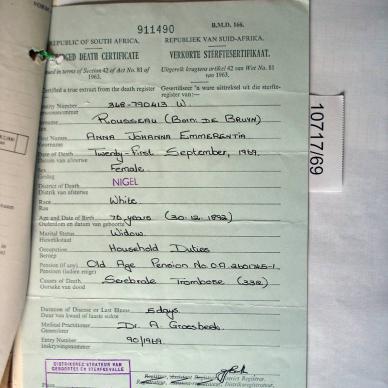 911490
B.M.D. 166.
REPUBLIC OF SOUTH AFRICA. REPUBLIEK VAN SUID-AFRIKA.
DEATH CERTIFICATE VERKORTE STERFTESERTIFIKAAT.
in terms of Section 42 of Act No. 81 of 1963. Uitgereik kragtens artikel 42 van Wet No. 81 van 1963.
Certified a true extract from the death register Gesertifiseer 'n ware uittreksel uit die sterfteregister van:—
Number 348-790413 W.
ROUSSEAU (BORN DE BRUYN)
Names ANNA JOHANNA EMMERENTIA
Voorname
Date of Death Twenty-First September, 1969.
Datum van afsterwe
Female
Geslag
District of Death NIGEL
Distrik van afsterwe
Race White
Ras
Age and Date of Birth (30.12.1892)
Ouderdom en datum van geboorte
Marital Status Widow
Huwelikstaat
Occupation Household Duties
Beroep
Pension (if any) Old Age Pension No O.A.
Pensioen (indien enige)
Causes of Death Serebrale Trombose (332)
Oorsake van dood
Duration of Disease or Last Illness 5 days
Duur van kwaal of laaste siekte
Medical Practitioner Dr. A. Groesbeek
Geneesheer
Entry Number 90/1969
Inskrywingsnommer
DISTRIKSREGISTRATEUR VAN
GEBOORTES EN STERFGEVALLE
District Registrar.
Distriksregistrateur.
10717/69